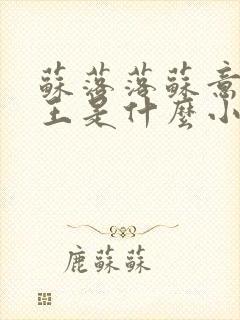 蘇落落蘇意
王是什麼小
鹿蘇蘇